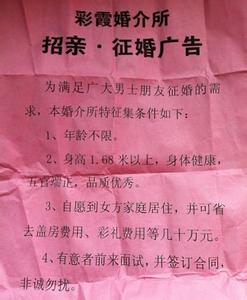 彩霞婚介所
招亲·征婚广告
为满足广大男士朋友征婚的需
求，本婚介所特征集条件如下：
1、年龄不限。
2、身高1.68米以上，身体健康，
五官端正，品质优秀。
3、自愿到女方家庭居住，并可省
去盖房费用、彩礼费用等几十万元。
4、有意者前来面试，并签订合同，
非诚勿扰。